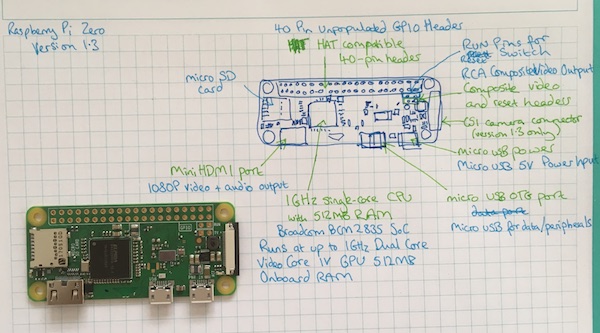 Raspberry Pi Zero
Version 1.3
40 Pin Unpopulated GPIO Header
HAT compatible
40-pin header
RUN Pins for
Switch
RCA Composite Video Output
Composite video
and reset headers
CSI camera connector
(version 1.3 only)
micro USB power
Micro USB 5V Power Input
micro SD
card
Mini HDMI port
1080P video + audio output
1GHz single-core CPU
with 512MB RAM
Broadcom BCM2835 SoC
Runs at up to 1GHz Dual Core
VideoCore IV GPU 512MB
Onboard RAM
micro USB OTG port
data port
Micro USB for data/peripherals